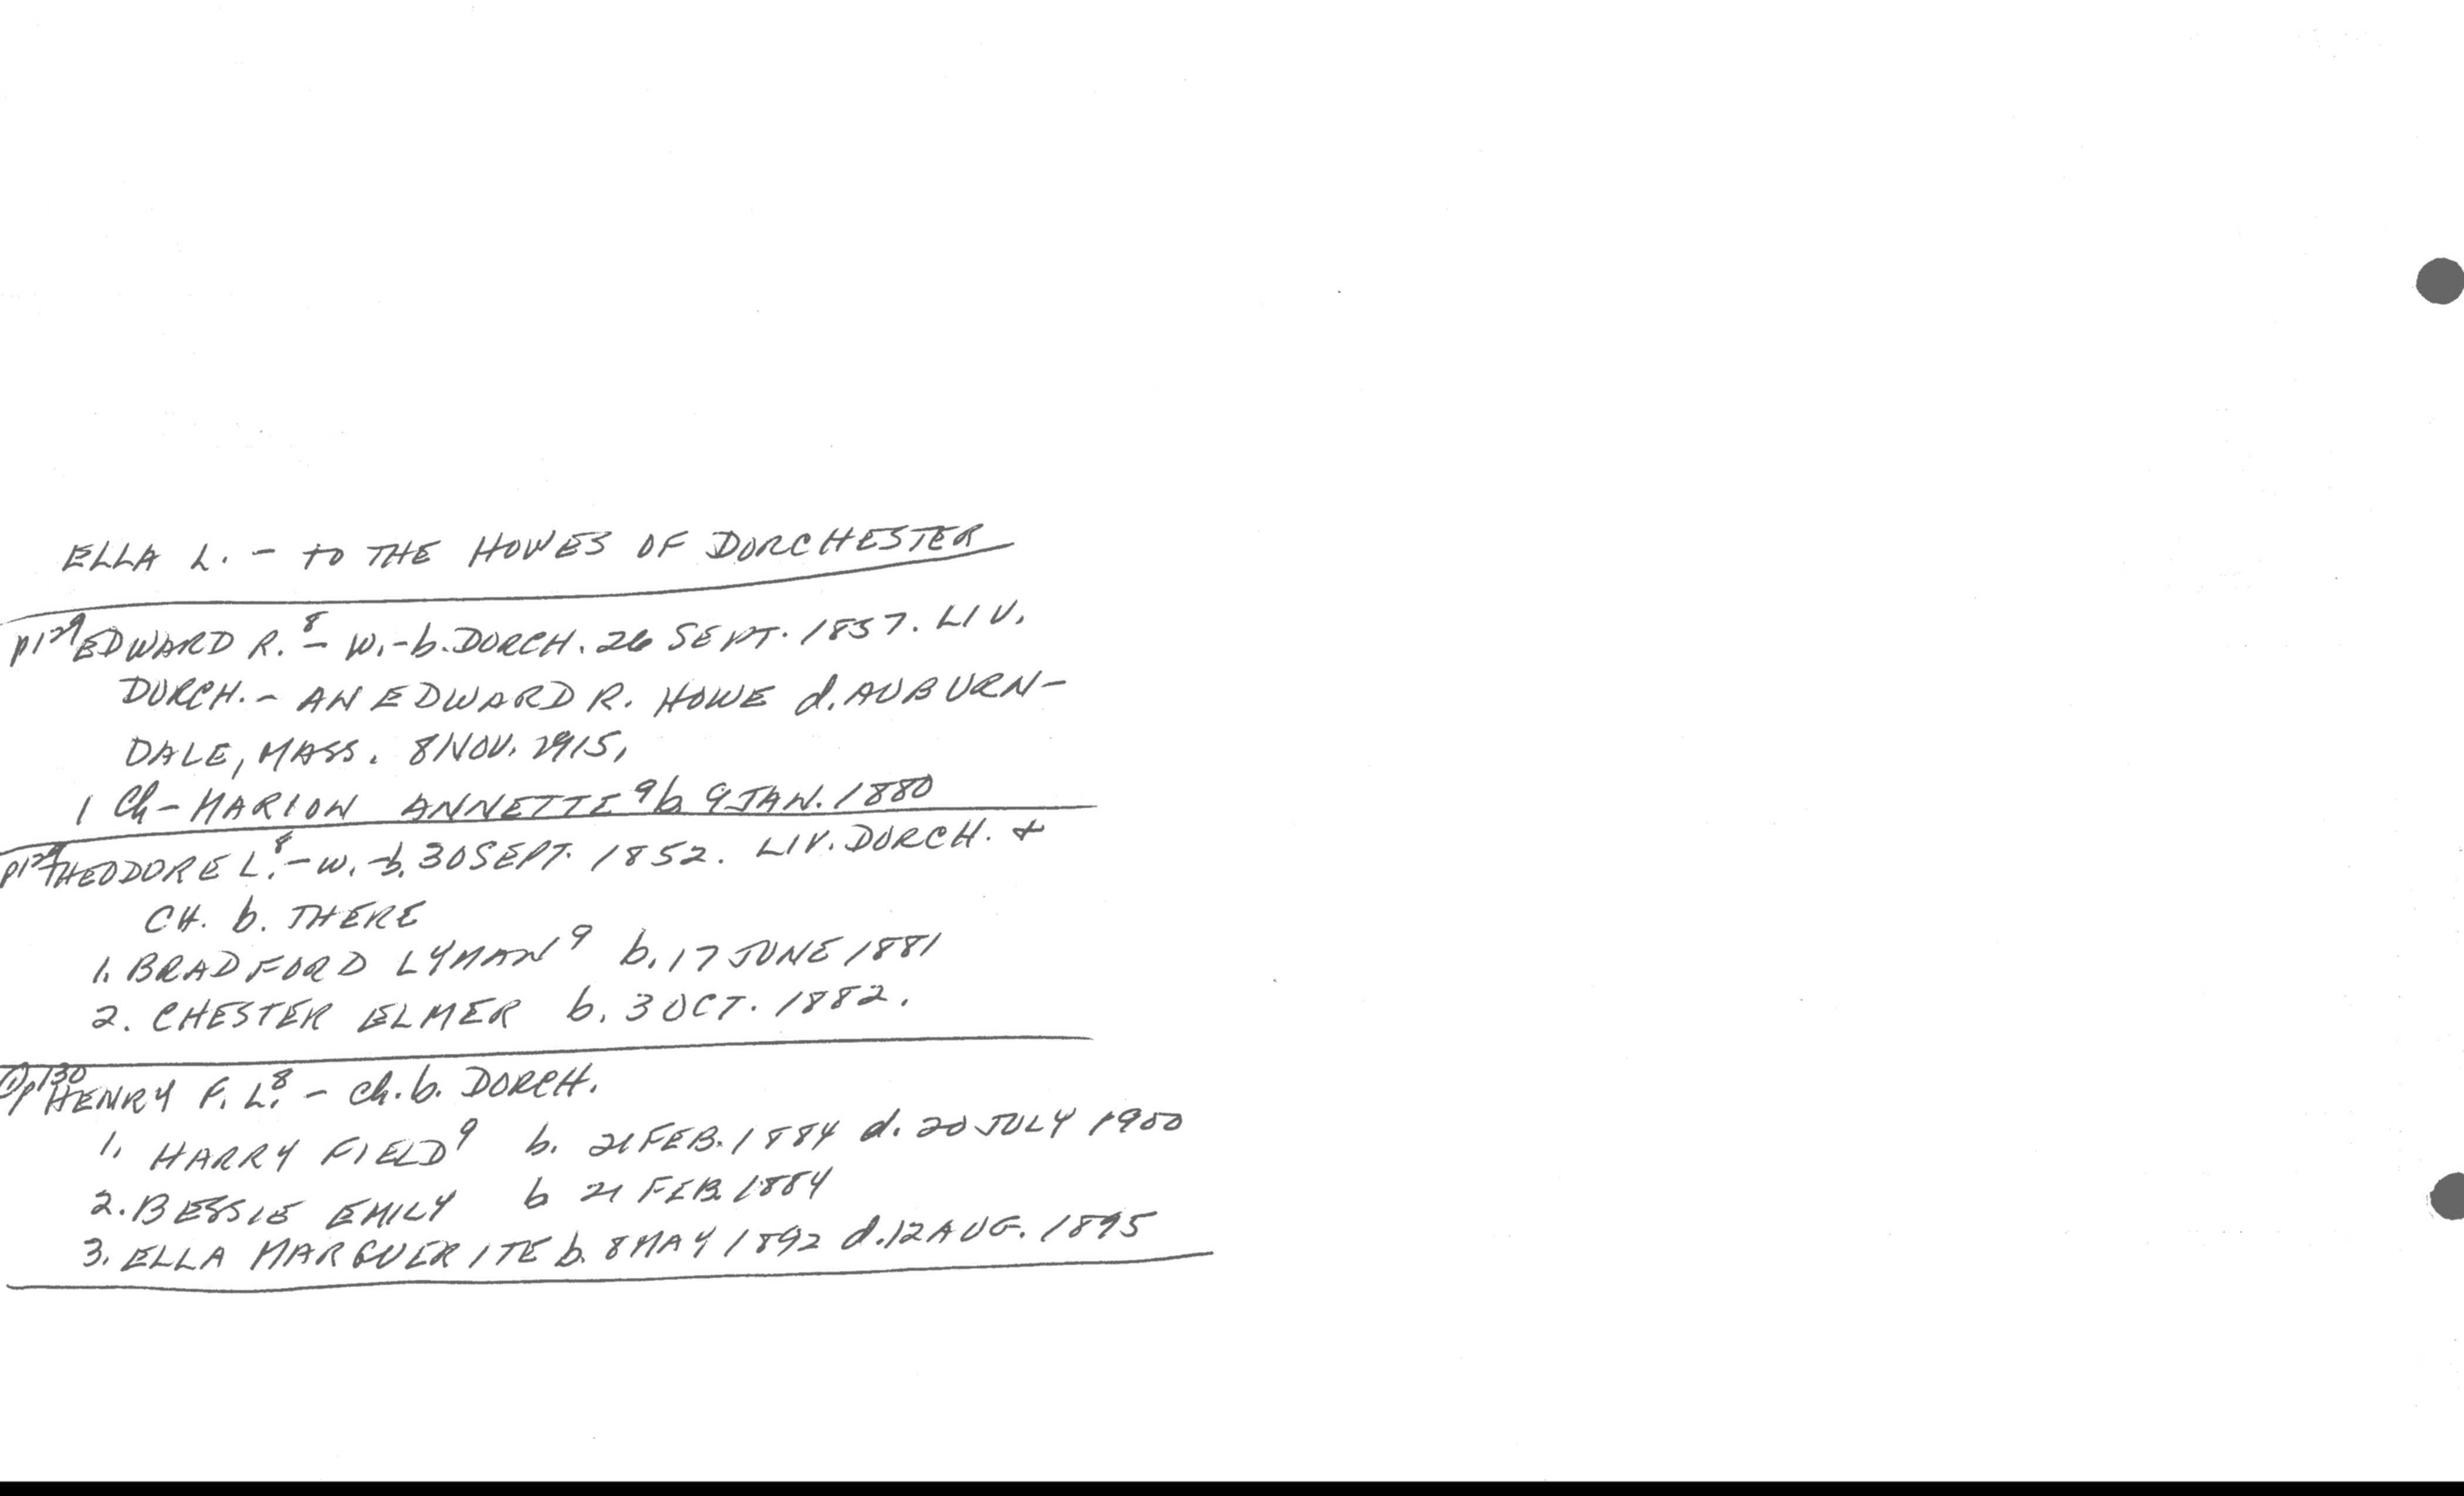 ELLA L. - TO THE HOWES OF DORCHESTER
p129 EDWARD R.⁸ - W. - b. DORCH. 26 SEPT. 1857. LIV.
DORCH. - AN EDWARD R. HOWE d. AUBURN-
DALE, MASS. 8 NOV. 1915,
1 Ch - MARION ANNETTE⁹ b. 9 JAN. 1880
p129 THEODORE L.⁸ - W. - b. 30 SEPT. 1852. LIV. DORCH. +
CH. b. THERE
1. BRADFORD LYMAN⁹ b. 17 JUNE 1881
2. CHESTER ELMER b. 3 OCT. 1882.
p130 HENRY F. L.⁸ - Ch. b. DORCH.
1. HARRY FIELD⁹ b. 21 FEB. 1884 d. 20 JULY 1900
2. BESSIE EMILY b 21 FEB. 1884
3. ELLA MARGUERITE b. 8 MAY 1892 d. 12 AUG. 1895